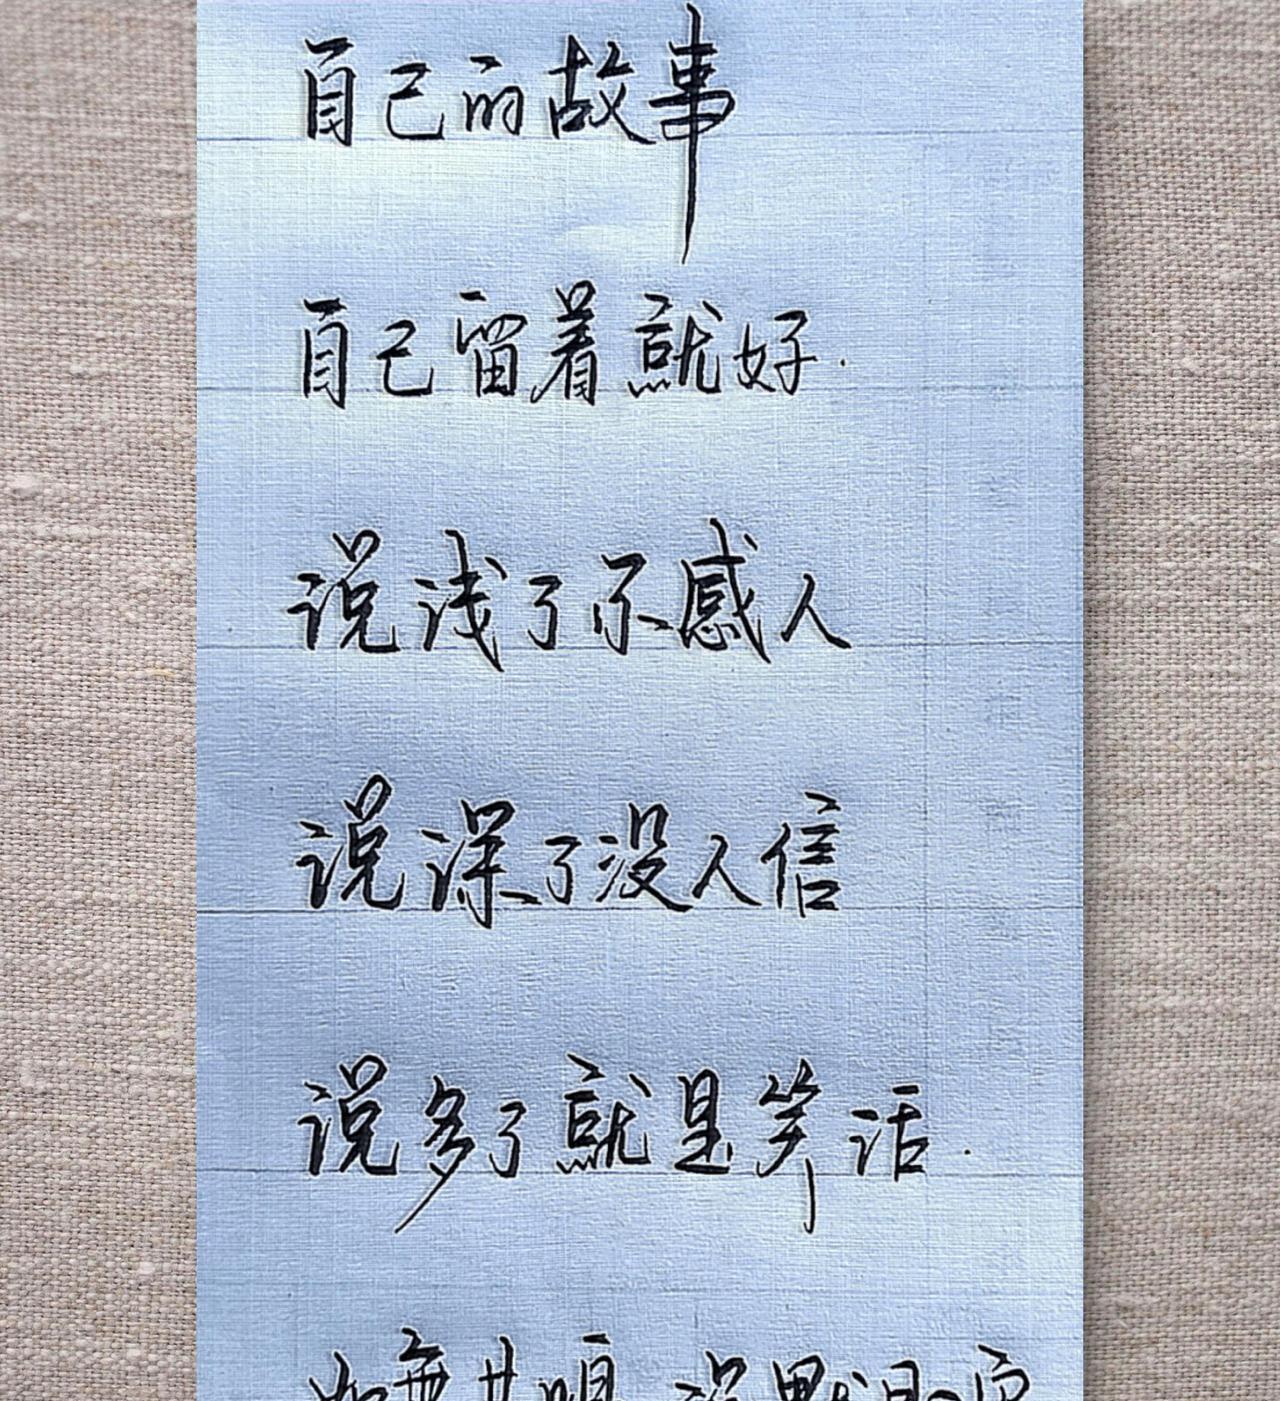 自己的故事
自己留着就好.
说浅了不感人
说深了没人信
说多了就是笑话.